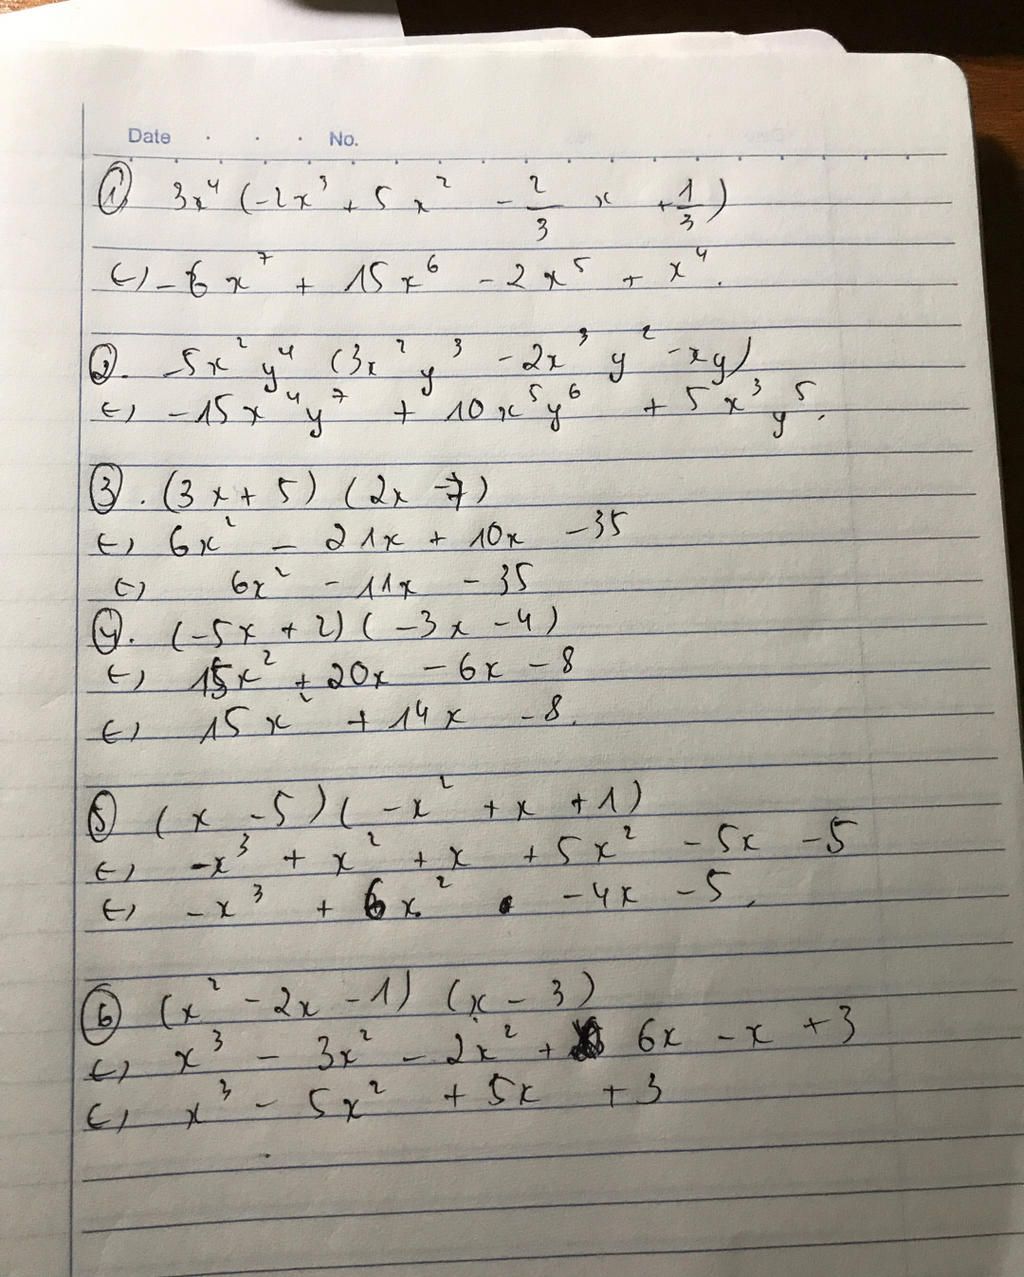 Date . . . No.
① 3x⁴ (-2x³ + 5x² - 2/3 x + 1/3)
(-) -6x⁷ + 15x⁶ - 2x⁵ + x⁴.
②. -5x²y⁴ (3x²y³ - 2x³y² - xy)
(-) -15x⁴y⁷ + 10x⁵y⁶ + 5x³y⁵.
③. (3x + 5) (2x - 7)
(-) 6x² - 21x + 10x - 35
(-) 6x² - 11x - 35
④. (-5x + 2) (-3x - 4)
(-) 15x² + 20x - 6x - 8
(-) 15x² + 14x - 8.
⑤ (x - 5) (-x² + x + 1)
(-) -x³ + x² + x + 5x² - 5x - 5
(-) -x³ + 6x² - 4x - 5.
⑥ (x² - 2x - 1) (x - 3)
(-) x³ - 3x² - 2x² + 6x - x + 3
(-) x³ - 5x² + 5x + 3